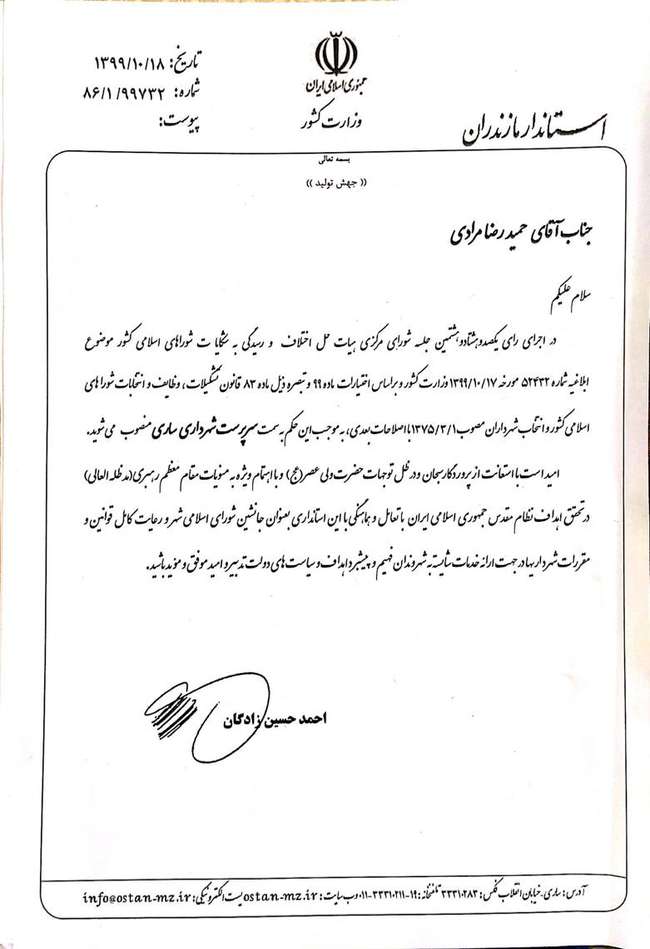 جمهوری اسلامی ایران
وزارت کشور
استاندار مازندران
تاریخ: ۱۳۹۹/۱۰/۱۸
شماره: ۸۶/۱/۹۹۷۳۲
پیوست:
بسمه تعالی
(( جهش تولید ))
جناب آقای حمیدرضا مرادی
سلام علیکم
در اجرای رای یکصدوهشتادوهشتمین جلسه شورای مرکزی هیات حل اختلاف و رسیدگی به شکایات شوراهای اسلامی کشور موضوع
ابلاغیه شماره ۵۲۴۳۲ مورخه ۱۳۹۹/۱۰/۱۷ وزارت کشور و براساس اختیارات ماده ۹۹ و تبصره ذیل ماده ۸۳ قانون تشکیلات، وظایف و انتخابات شوراهای
اسلامی کشور و انتخاب شهرداران مصوب ۱۳۷۵/۳/۱ با اصلاحات بعدی، به موجب این حکم به سمت سرپرست شهرداری ساری منصوب می‌شوید.
امید است با استعانت از پروردگار سبحان و در ظل توجهات حضرت ولی عصر(عج) و با اهتمام ویژه به منویات مقام معظم رهبری(مدظله العالی)
در تحقق اهداف نظام مقدس جمهوری اسلامی ایران با تعامل و هماهنگی با این استانداری بعنوان جانشین شورای اسلامی شهر و رعایت کامل قوانین و
مقررات شهرداریها در جهت ارائه خدمات شایسته به شهروندان فهیم و پیشبرد اهداف و سیاست‌های دولت تدبیر و امید موفق و مؤید باشید.
احمد حسین زادگان
آدرس: ساری-خیابان انقلاب فکس: ۳۳۳۱۰۲۸۳ تلفنخانه: ۱۹-۳۳۳۱۰۲۱۱-۰۱۱ وب سایت: ostan-mz.ir پست الکترونیکی: info@ostan-mz.ir